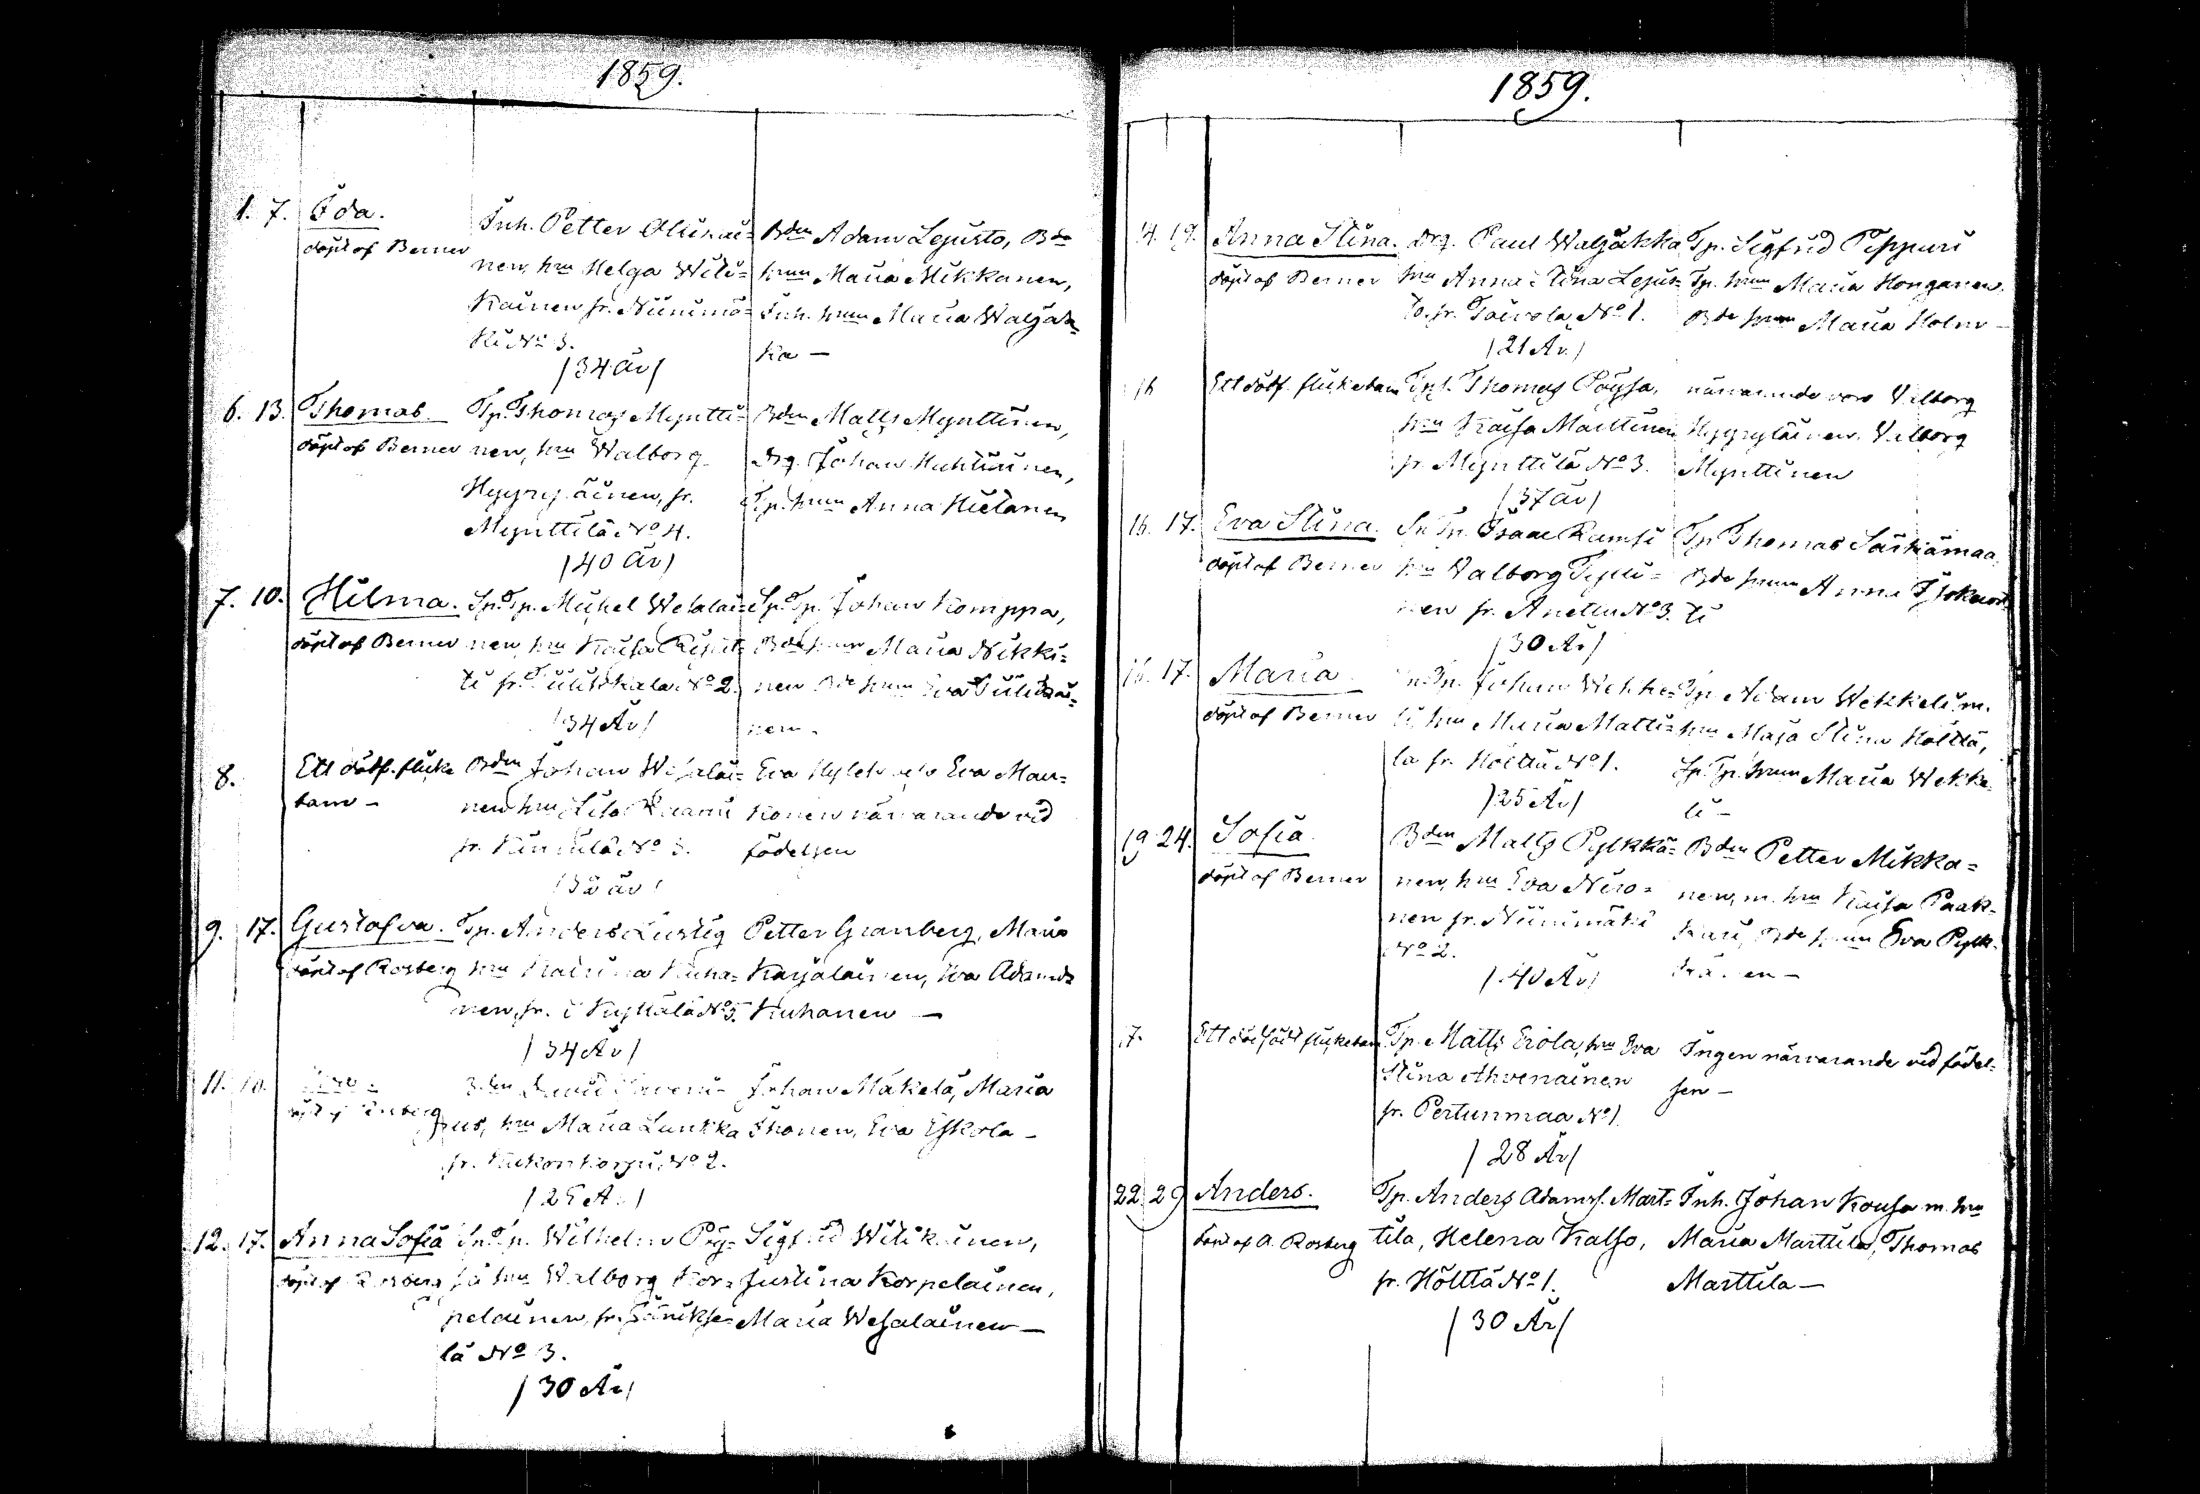 1859.
1. 7. Ida.
döpt af Berner
Inh. Petter Olikai=
nen, hru Helga Wili=
kainen fr. Niinimä=
ki No 3.
/34 år/
Bden Adam Lejusto, Bde
hrun Maria Mikkanen,
Inh. hrun Maria Waljak=
ka —
6. 13. Thomas.
döpt af Berner
Tp. Thomas Myntti=
nen, hru Walborg
Hyyryläinen, fr.
Mynttilä No 4.
/40 år/
Bden Matts Mynttinen,
Drg. Johan Huhtiainen,
Tp. hrun Anna Hietanen
7. 10. Hilma.
döpt af Berner
Sp. Tp. Mickel Wesalai=
nen, hru Kaisa
ti fr. No 2.
/34 År/
Sp. Tp. Johan Komppa,
Bde hrun Maria Nikki=
nen Bde hrun Eva
nen.
8. Ett dödf. flicke
barn —
Bden Johan Wesalai=
nen hru Lisa
fr. No 3.
år/
Eva Eva Man=
konen närvarande vid
födelsen
9. 17. Gustafva.
döpt af Rosberg
Tp. Anders Lustig
hru Katrina Kuha=
nen, fr. Kyttälä No 5.
/34 År/
Petter Granberg, Maria
Karjalainen, Eva Adamsd
Kuhanen —
11.
Bden
hru Maria Lankka
fr. No 2.
Johan Mäkelä, Maria
Ihonen, Eva Eskola —
12. 17. Anna Sofia
döpt af Rosberg
Wilhelm Pöy=
sä hru Walborg Kor=
pelainen, fr.
lä No 3.
/30 År/
Sigfrid Wilikainen,
Justina Korpelainen,
Maria Wesalainen —
1859.
14. 19. Anna Stina.
döpt af Berner
Drg. Paul Waljakka
hru Anna Stina Lejus=
to, fr. Toivola No 1.
/21 År/
Tp. Sigfrid Pippuri
Tp. hrun Maria Honganen.
Bde hrun Maria Holm —
16 Ett dödf. flickebarn
Thomas Pöysä,
hru Kaisa Marttinen
fr. Mynttilä No 3.
/37 år/
närvarande voro Valborg
Hyyryläinen, Valborg
Mynttinen
16. 17. Eva Stina.
döpt af Berner
Isaac Ramsi
hru Valborg Tepli=
nen fr. Anettu No 3.
/30 År/
Tp. Thomas Särkämaa,
Bde hrun Anna
ti
16. 17. Maria
döpt af Berner
Johan Wekke=
li, hru Maria Matti=
la fr. Hölttä No 1.
/25 År/
Tp. Adam Wekkeli m.
hru Maja Stina Hölttä,
Sp. Tp. hrun Maria Wekke=
li —
19 24. Sofia.
döpt af Berner
Bden Matts Pylkkä=
nen, hru Eva Niro=
nen fr. Niinimäki
No 2.
/40 År/
Bden Petter Mikka=
nen, m. hru Kaisa Paak=
kari, Bde hrun Eva Pylk=
känen —
17. Ett dödfödt flickebarn
Tp. Matts Erola, hru Eva
Stina Ahvenainen
fr. Pertunmaa No 1.
/28 År/
Ingen närvarande vid födel=
sen —
22. 29 Anders.
döpt af A. Rosberg
Tp. Anders Adamss. Mart=
tila, Helena Kalso,
fr. Hölttä No 1.
/30 År/
Inh. Johan Kousa m. hru
Maria Marttila, Thomas
Marttila —